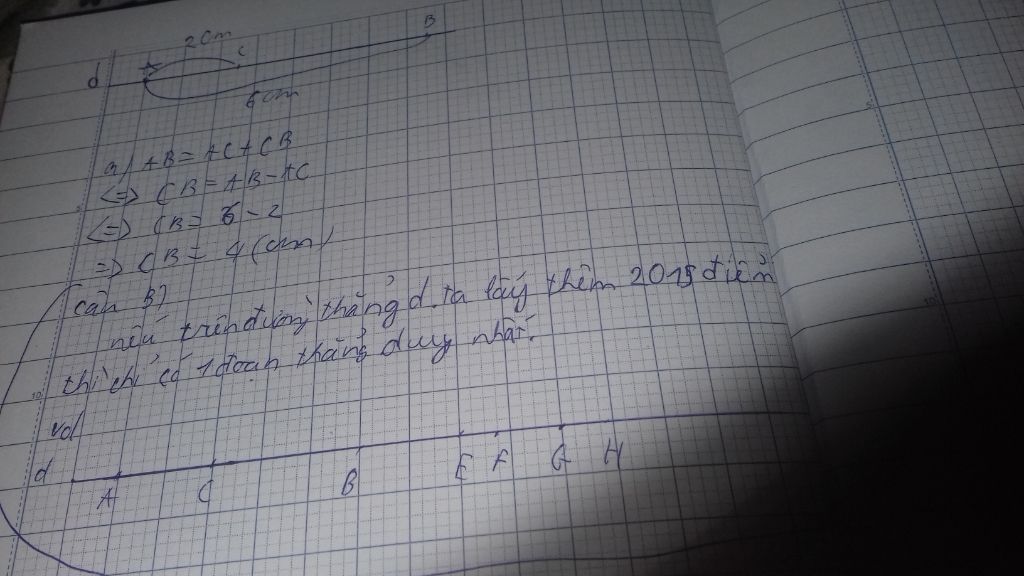 2cm
B
C
d
6cm
a) AB = AC + CB
<=> CB = AB - AC
<=> CB = 6 - 2
=> CB = 4 (cm)
câu B)
nếu trên đường thẳng d. ta lấy thêm 2018 điểm
thì chỉ có 1 đoạn thẳng duy nhất.
vd
d
A C B E F G H